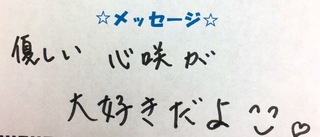 ☆メッセージ☆
優しい 心咲が
大好きだよ